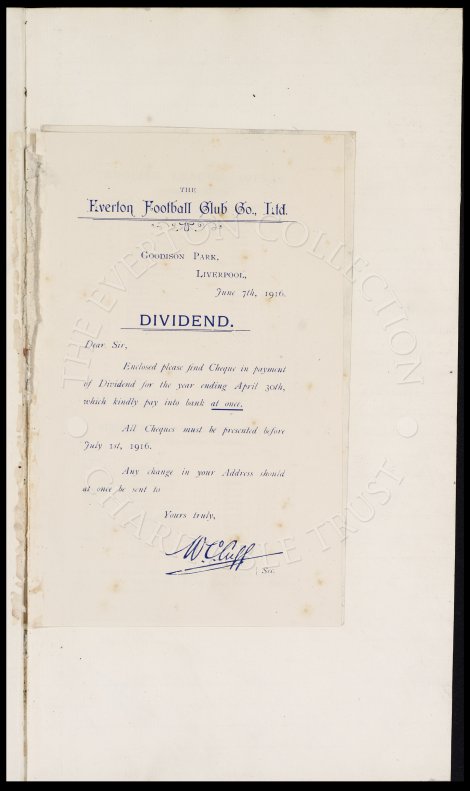 THE
Everton Football Club Co., Ltd.
GOODISON PARK,
LIVERPOOL,
June 7th, 1916.
DIVIDEND.
Dear Sir,
Enclosed please find Cheque in payment
of Dividend for the year ending April 30th,
which kindly pay into bank at once.
All Cheques must be presented before
July 1st, 1916.
Any change in your Address should
at once be sent to
Yours truly,
W. C. Cuff
Sec.
THE EVERTON COLLECTION
CHARITABLE TRUST